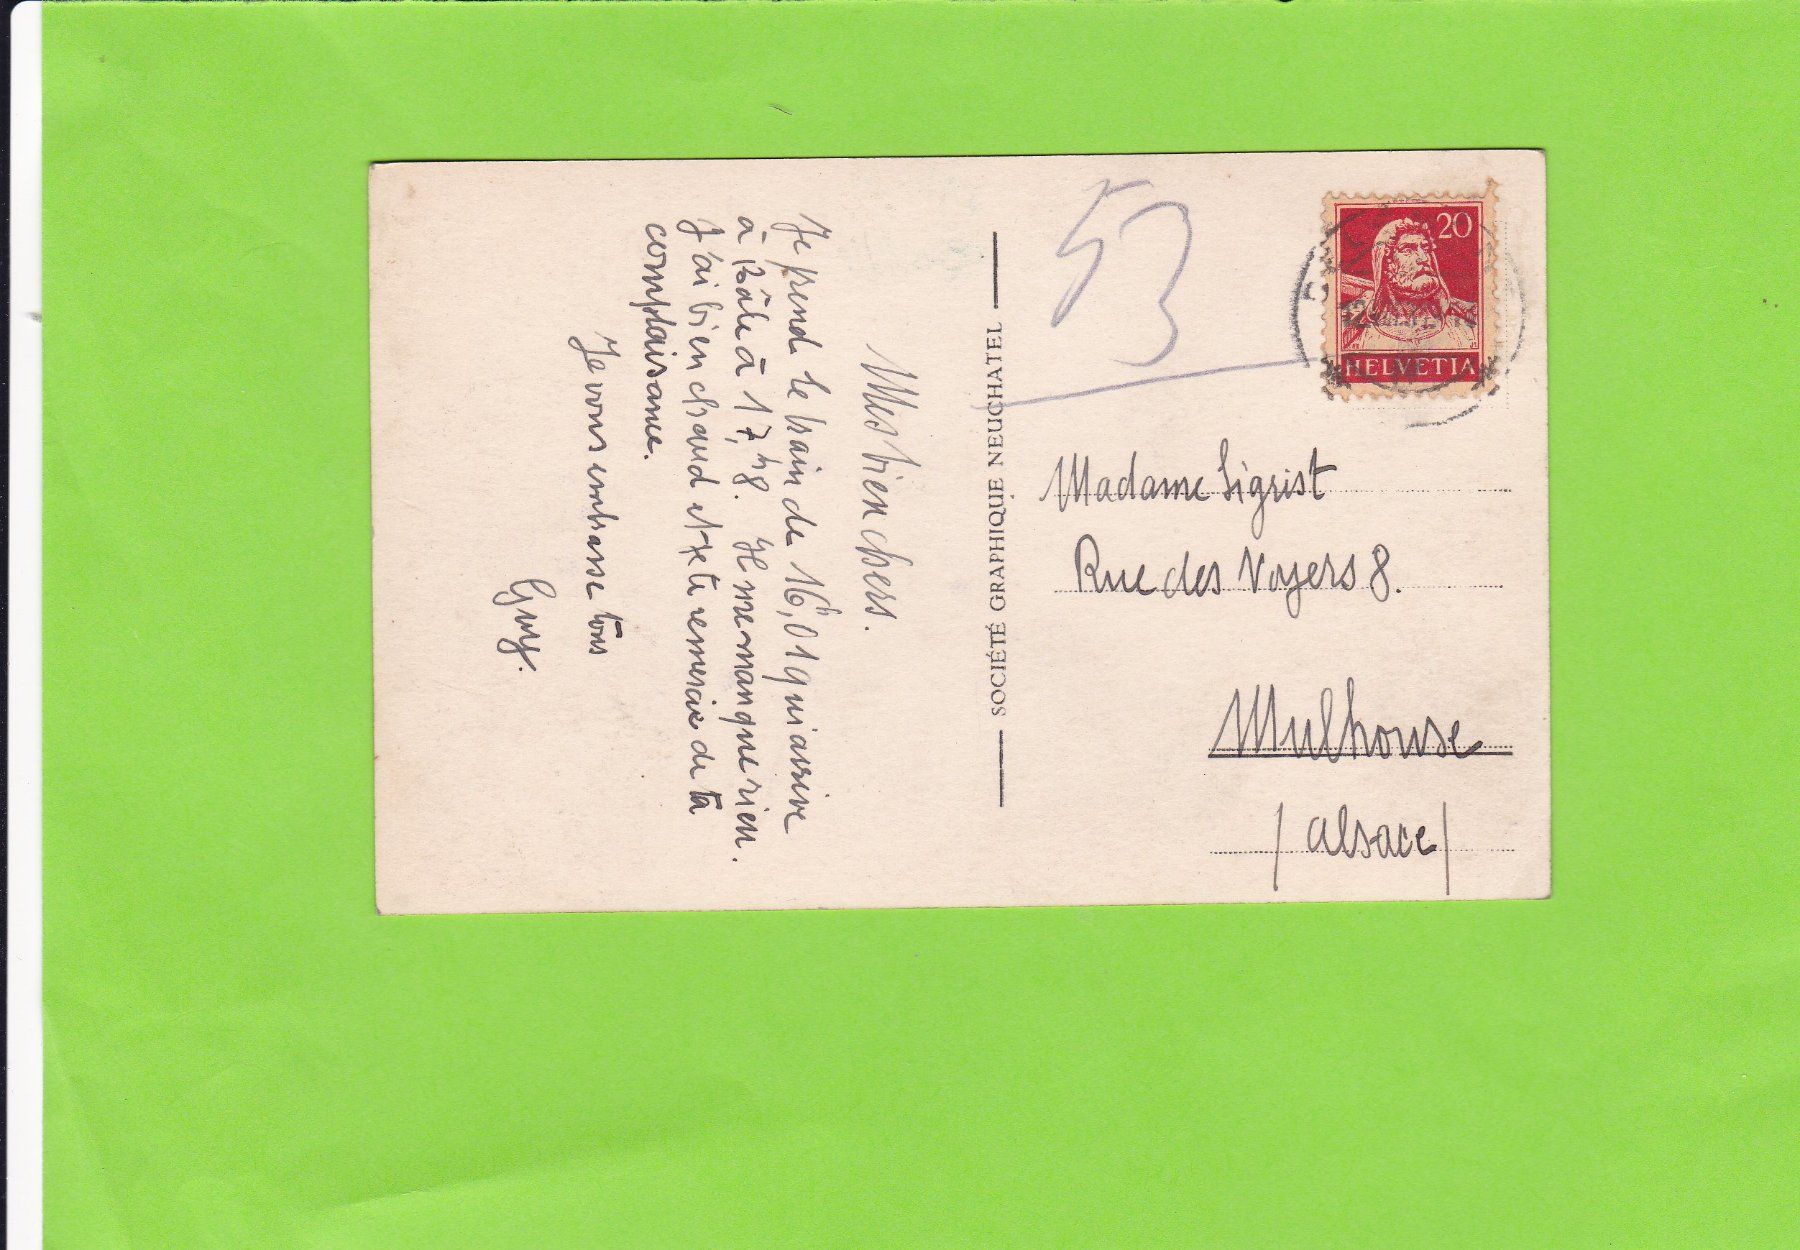 Mes bien chers.
Je prend le train de 16h,01 qui arrive
à Bâle à 17,48. Il me manque rien.
J'ai bien chaud et te remercie de ta
complaisance.
Je vous embrasse tous
Guy.
SOCIÉTÉ GRAPHIQUE NEUCHATEL
53
20
HELVETIA
Madame Sigrist
Rue des Voyers 8.
Mulhouse
/Alsace/